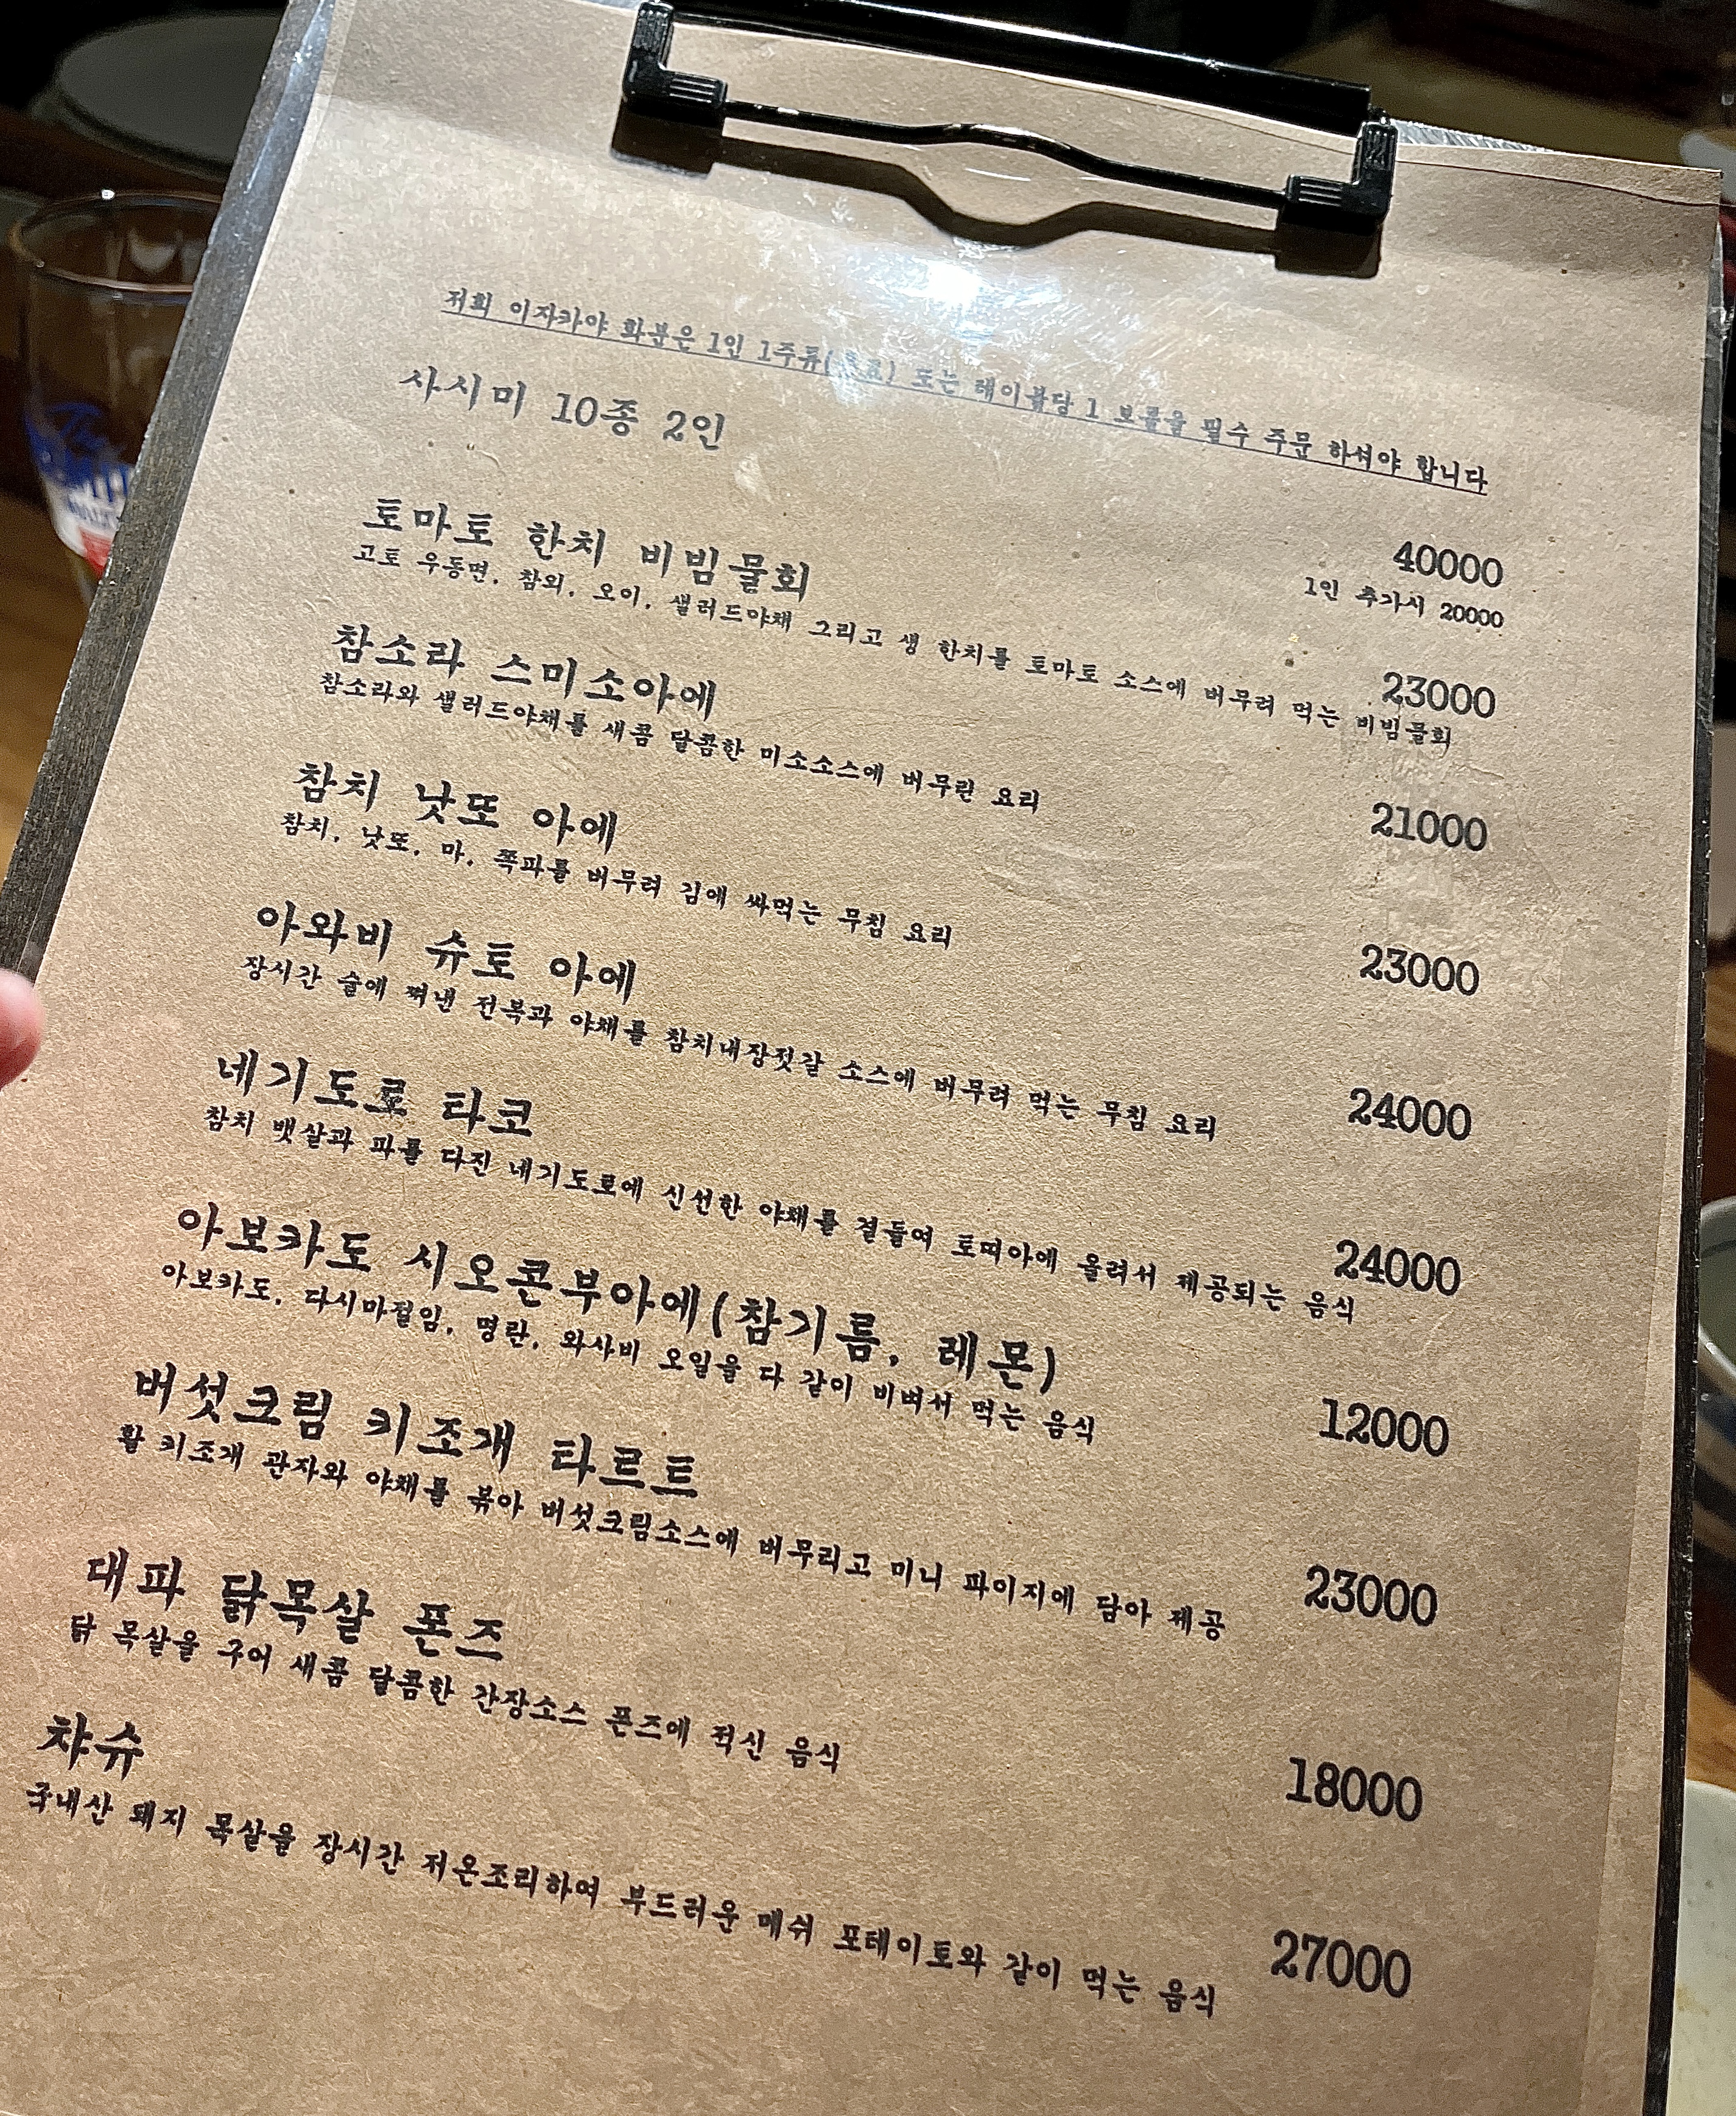 저희 이자카야 화분은 1인 1주류(음료) 또는 테이블당 1 보틀을 필수 주문 하셔야 합니다
사시미 10종 2인 40000
1인 추가시 20000
토마토 한치 비빔물회 23000
고토 우동면, 참외, 오이, 샐러드야채 그리고 생 한치를 토마토 소스에 버무려 먹는 비빔물회
참소라 스미소아에 21000
참소라와 샐러드야채를 새콤 달콤한 미소소스에 버무린 요리
참치 낫또 아에 23000
참치, 낫또, 마, 쪽파를 버무려 김에 싸먹는 무침 요리
아와비 슈토 아에 24000
장시간 술에 쪄낸 전복과 야채를 참치내장젓갈 소스에 버무려 먹는 무침 요리
네기도로 타코 24000
참치 뱃살과 파를 다진 네기도로에 신선한 야채를 곁들여 토띠아에 올려서 제공되는 음식
아보카도 시오콘부아에(참기름, 레몬) 12000
아보카도, 다시마절임, 명란, 와사비 오일을 다 같이 비벼서 먹는 음식
버섯크림 키조개 타르트 23000
활 키조개 관자와 야채를 볶아 버섯크림소스에 버무리고 미니 파이지에 담아 제공
대파 닭목살 폰즈 18000
닭 목살을 구어 새콤 달콤한 간장소스 폰즈에 적신 음식
챠슈 27000
국내산 돼지 목살을 장시간 저온조리하여 부드러운 매쉬 포테이토와 같이 먹는 음식